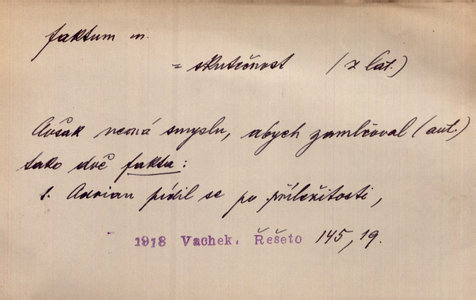 faktum n.
= skutečnost (z lat.)
Avšak nemá smyslu, abych zamlčoval (aut.)
tato dvě fakta:
1. Adrian pídil se po příležitosti,
1918 Vachek, Řešeto 145, 19.